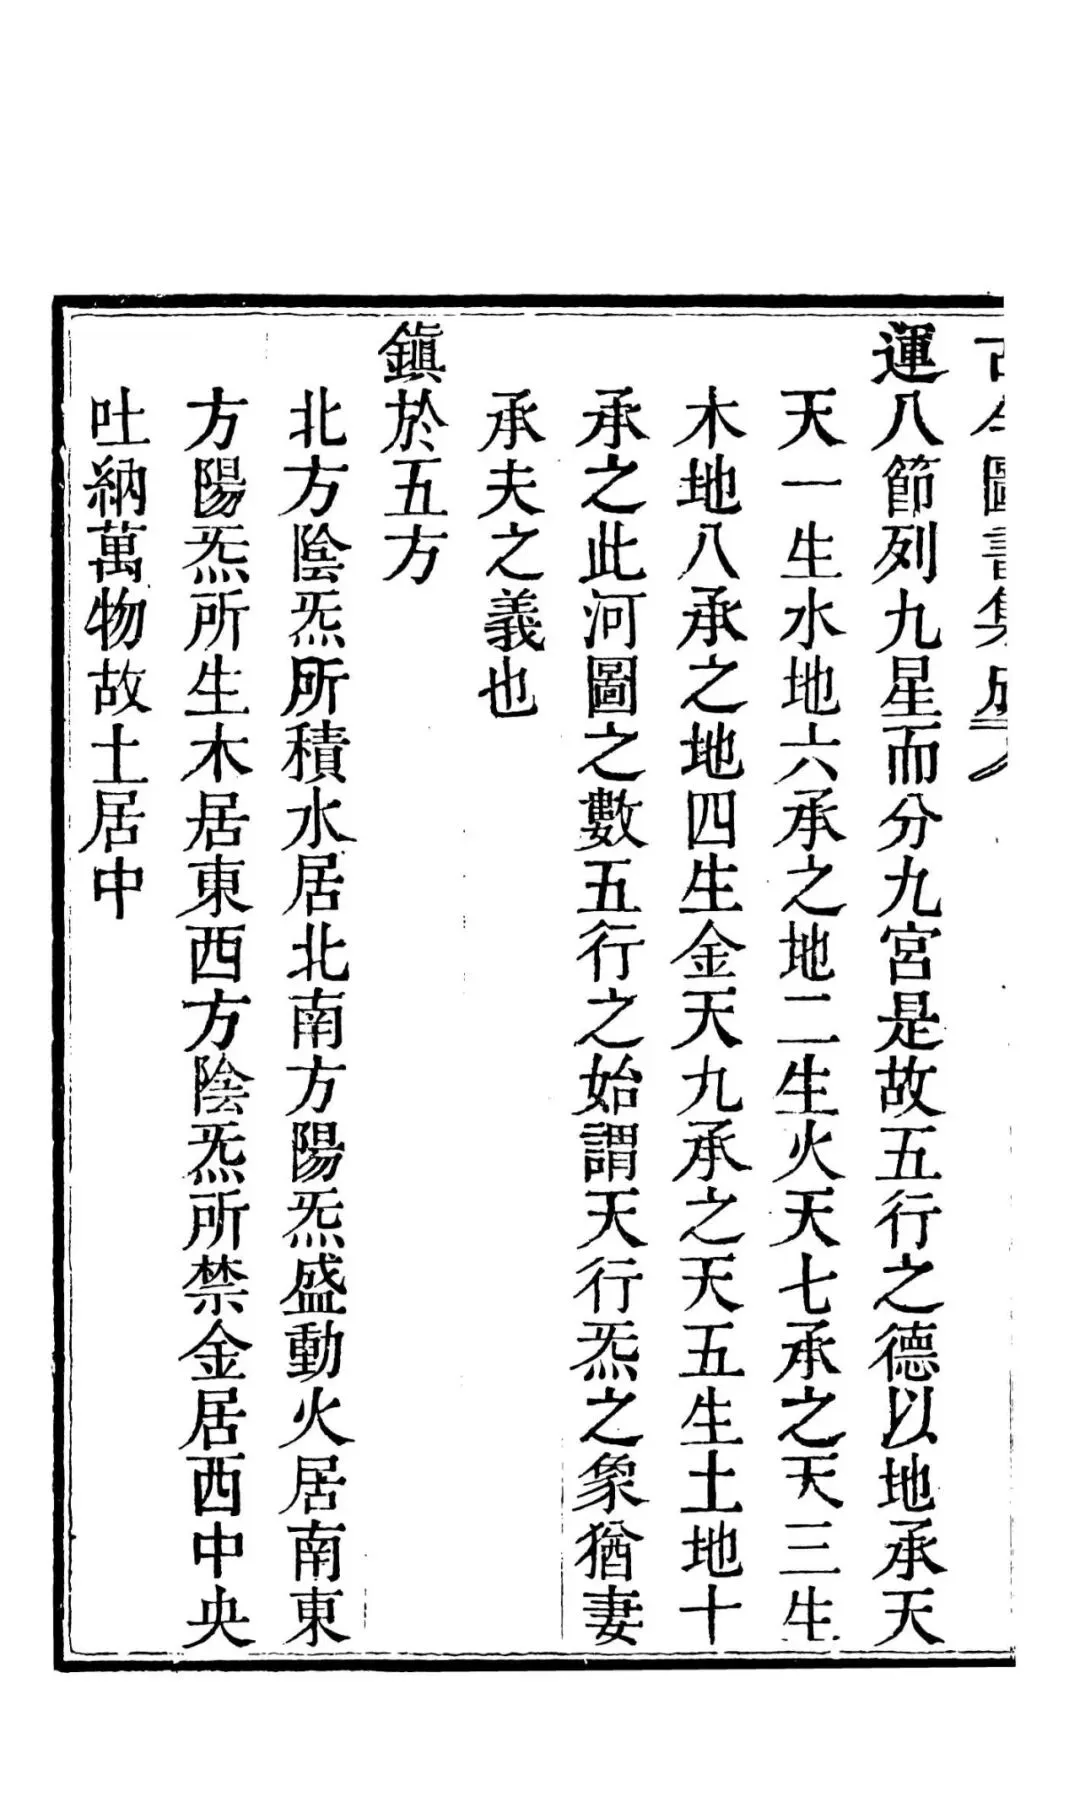 古今圖書集成
運八節列九星而分九宮是故五行之德以地承天
天一生水地六承之地二生火天七承之天三生
木地八承之地四生金天九承之天五生土地十
承之此河圖之數五行之始謂天行炁之象猶妻
承夫之義也
鎮於五方
北方陰炁所積水居北南方陽炁盛動火居南東
方陽炁所生木居東西方陰炁所禁金居西中央
吐納萬物故土居中